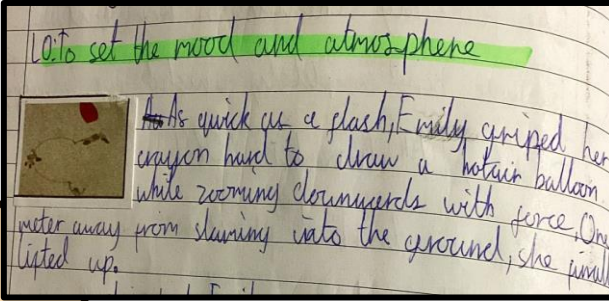 LO:To set the mood and atmosphere
As quick as a flash, Emily griped her
crayon hard to draw a hotair balloon
while zooming downwards with force, One
meter away from slaming into the ground, she
lifted up.